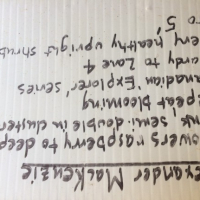 exander MacKenzie
lowers raspberry to deep
nk semi-double in cluster
peat blooming
anadian 'Explorer' series
ardy to Zone 4
ery healthy upright shrub
to 5'